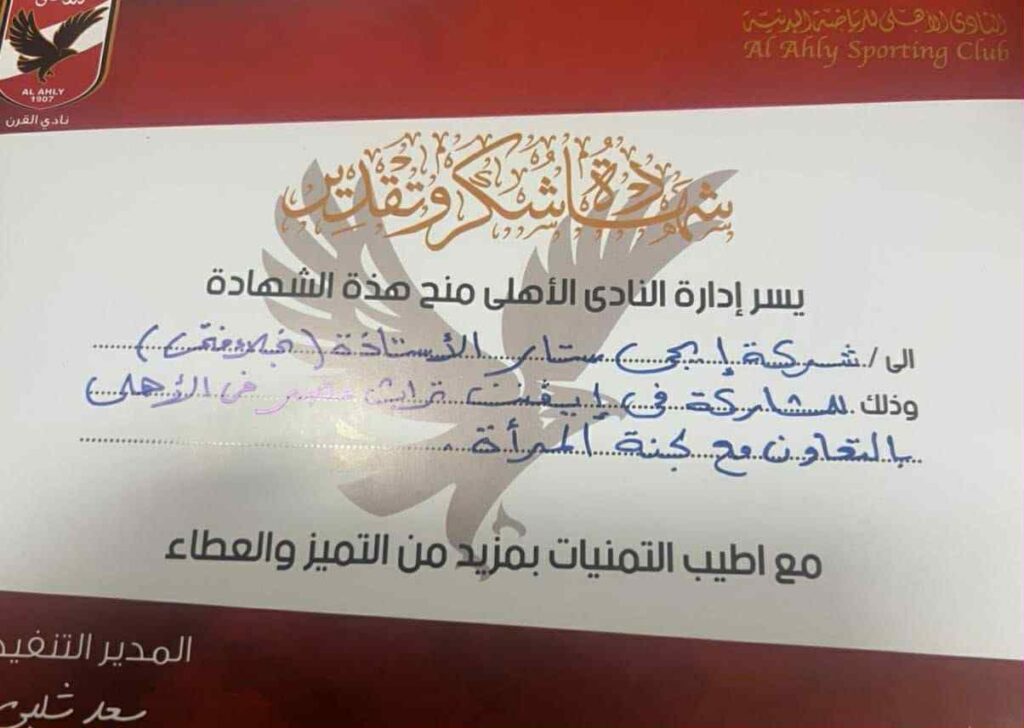 AL AHLY
1907
نادي القرن
النادى الأهلى للرياضة البدنية
Al Ahly Sporting Club
شهادة شكر وتقدير
يسر إدارة النادى الأهلى منح هذة الشهادة
الى / شركة إيجى ستار الأستاذة
وذلك للمشاركة فى إيڤنت تراث مصر فى الأهلى
بالتعاون مع لجنة المرأة
مع اطيب التمنيات بمزيد من التميز والعطاء
المدير
سعد شلبى